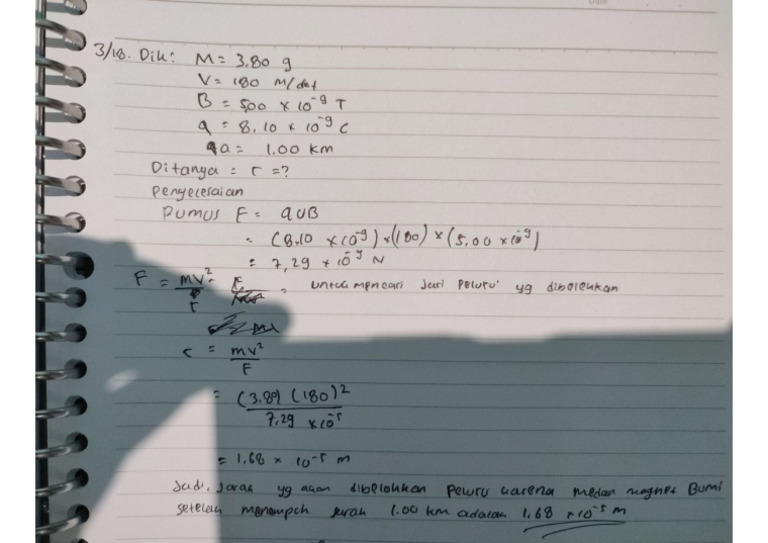 3/18. Dik: M = 3,80 g
V = 180 m/det
B = 500 × 10⁻⁹ T
q = 8,10 × 10⁻⁹ C
a = 1.00 km
Ditanya = r = ?
Penyelesaian
Rumus F = qUB
= (8,10 × 10⁻⁹) × (180) × (5,00 × 10⁻⁹)
= 7,29 × 10⁻⁹ N
F = mv²/r = untuk mencari Jari Peluru yg dibelokkan
r = mv²/F
= (3,80) (180)²/7,29 × 10⁻⁵
= 1,68 × 10⁻⁵ m
Jadi, jarak yg akan dibelokkan Peluru karena medan magnet Bumi
setelah menempuh jarak 1.00 km adalah 1,68 × 10⁻⁵ m